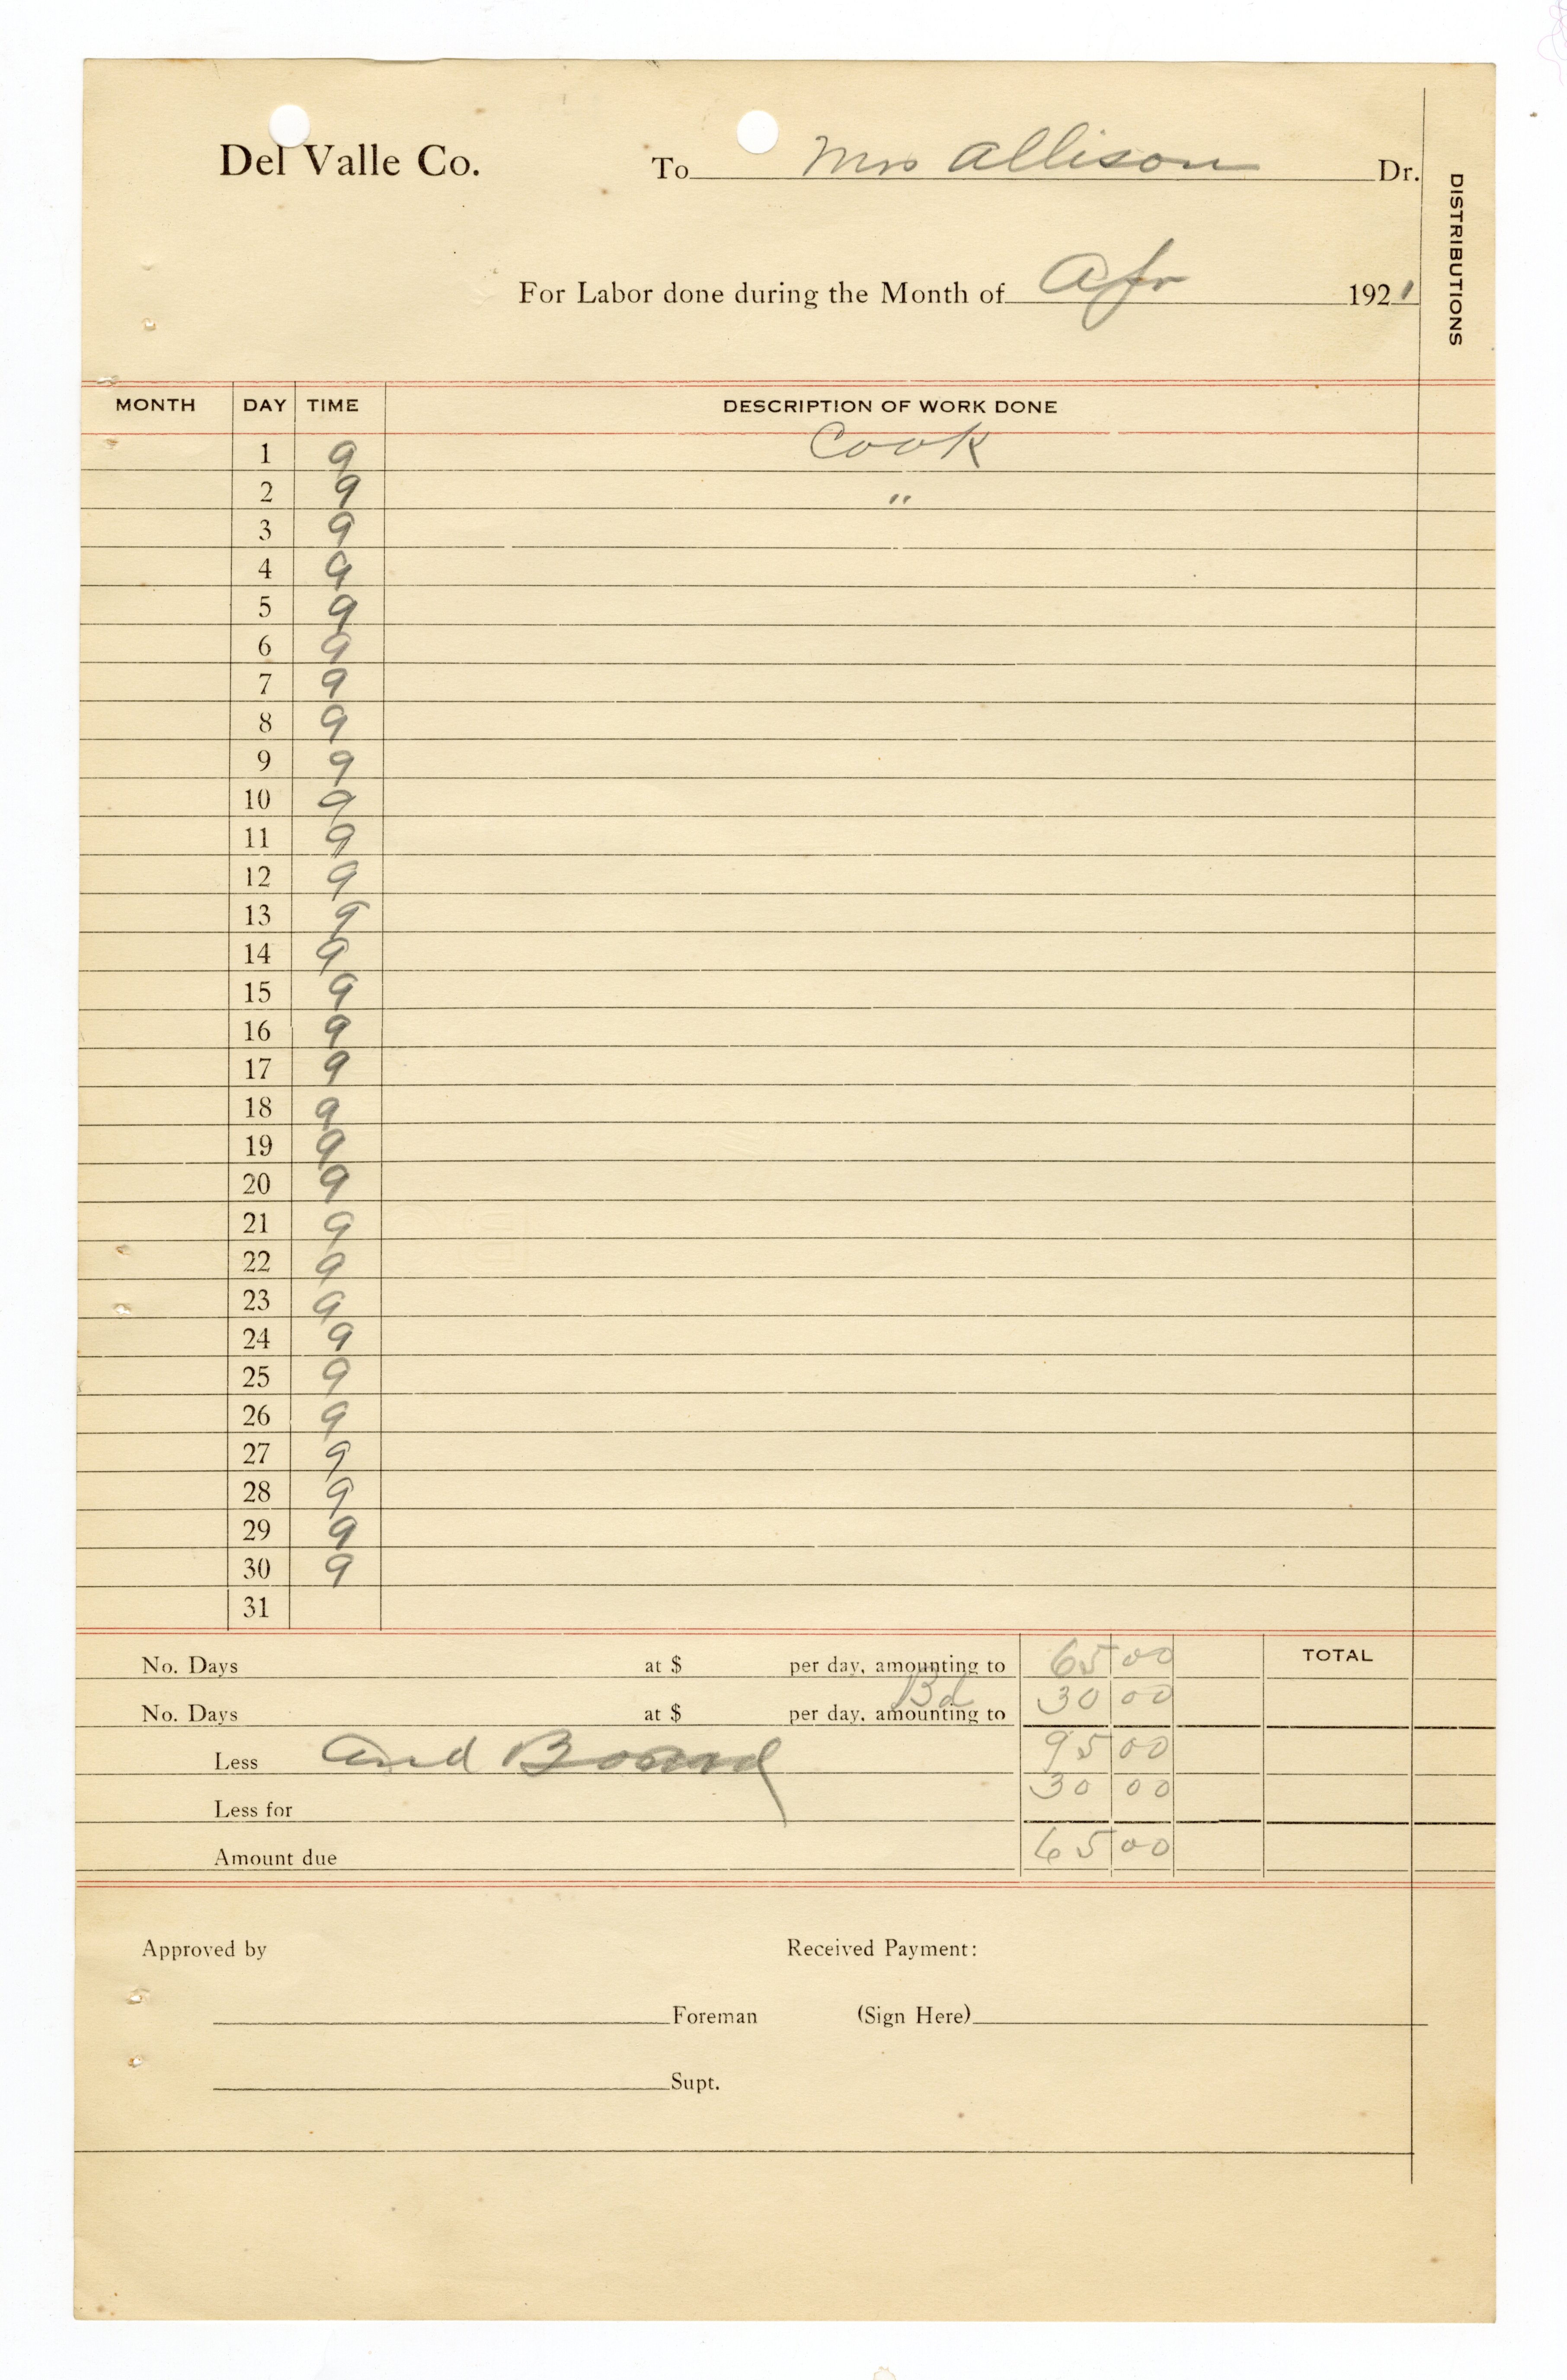 Del Valle Co. To Mrs Allison Dr.
DISTRIBUTIONS
For Labor done during the Month of Apr 1921
MONTH DAY TIME DESCRIPTION OF WORK DONE
1 9 Cook
2 9 "
3 9
4 9
5 9
6 9
7 9
8 9
9 9
10 9
11 9
12 9
13 9
14 9
15 9
16 9
17 9
18 9
19 9
20 9
21 9
22 9
23 9
24 9
25 9
26 9
27 9
28 9
29 9
30 9
31
No. Days at $ per day, amounting to 65 00 TOTAL
Bd
No. Days at $ per day, amounting to 30 00
Less and Board 95 00
Less for 30 00
Amount due 65 00
Approved by Received Payment:
Foreman (Sign Here)
Supt.